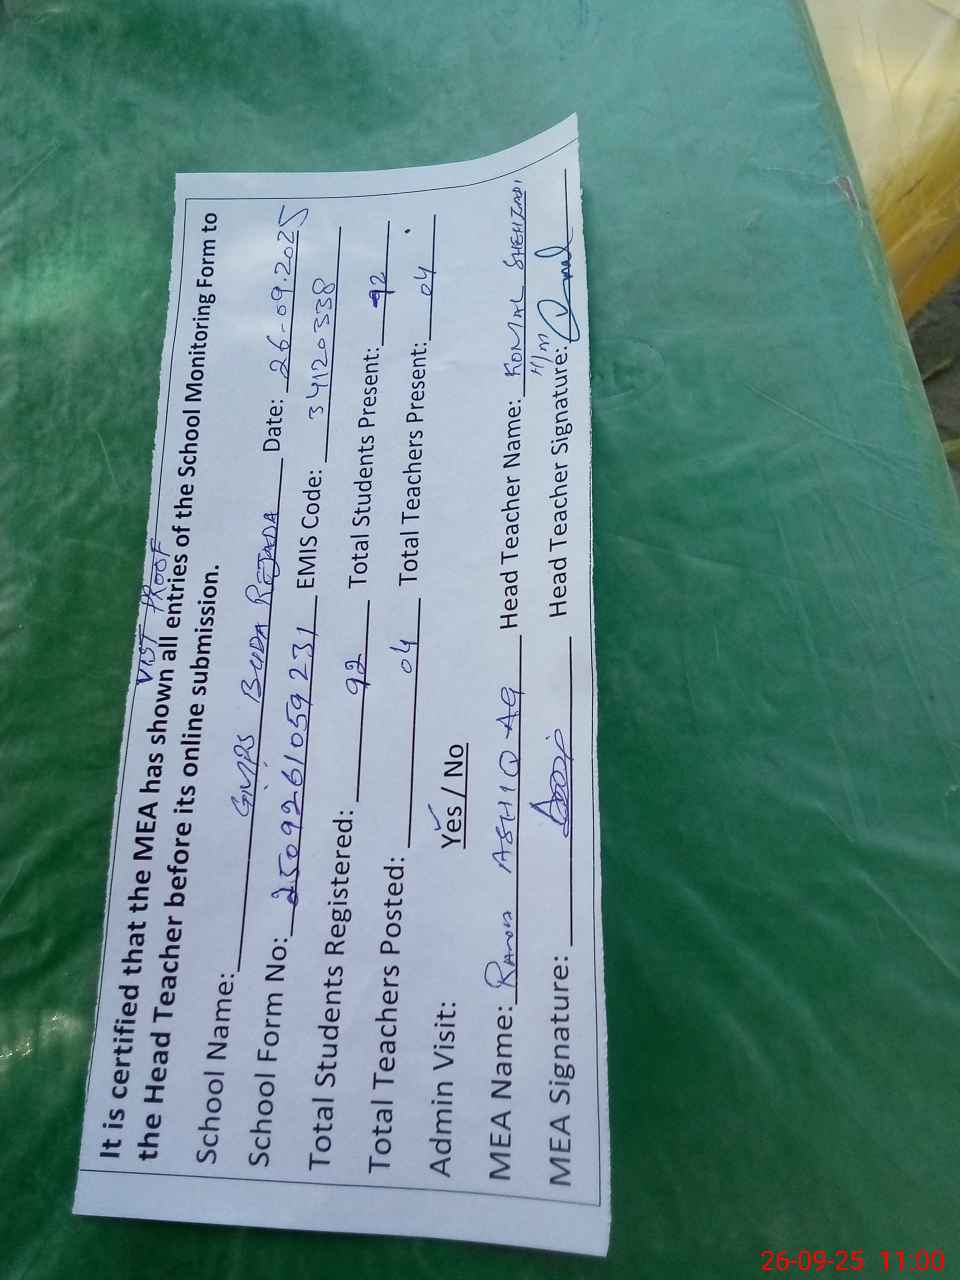 VISIT PROOF
It is certified that the MEA has shown all entries of the School Monitoring Form to
the Head Teacher before its online submission.
School Name: GMPS BUDA Date: 26-09.2025
School Form No: 25092610592 31 EMIS Code: 34120338
Total Students Registered: 92 Total Students Present: 92
Total Teachers Posted: 04 Total Teachers Present: 04
Admin Visit: Yes / No
MEA Name: ASHIQ Head Teacher Name: KOMAL SHEHZADI
H/M
MEA Signature: Head Teacher Signature:
26-09-25 11:00